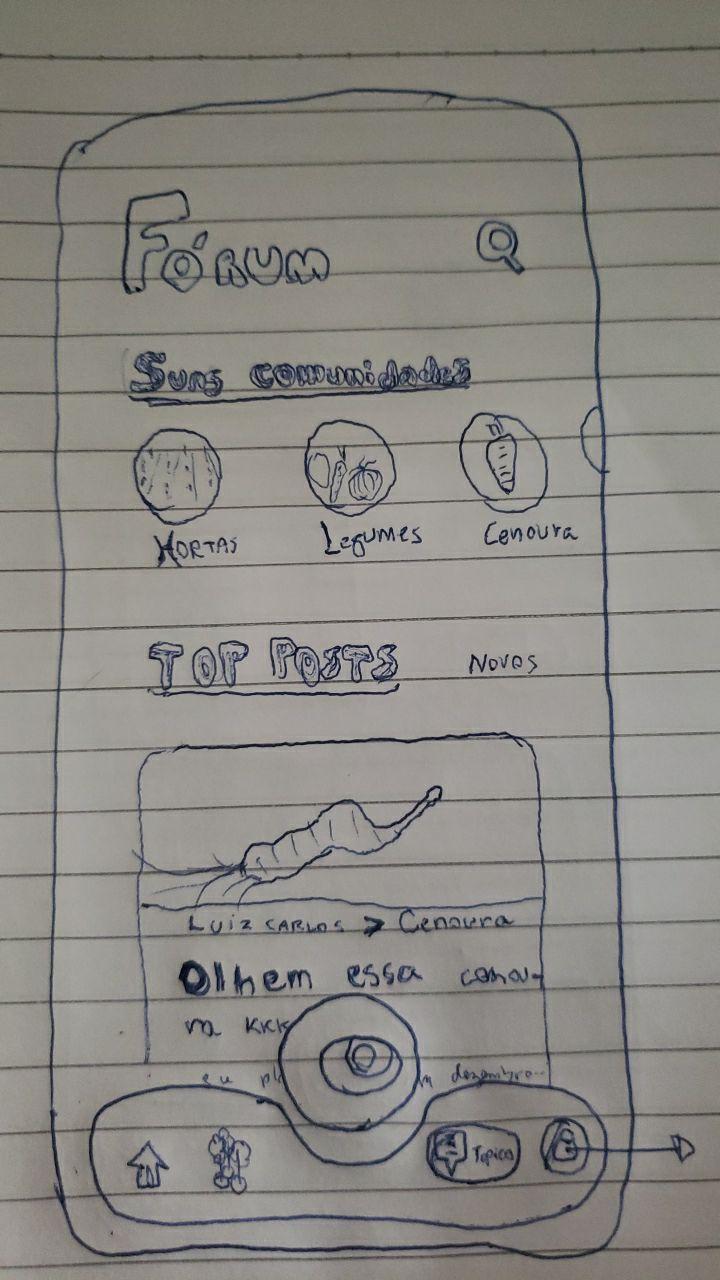 Fórum
Suas comunidades
Hortas
Legumes
Cenoura
Top Posts
Novos
Luiz Carlos > Cenoura
Olhem essa cenou-
ra kkk
eu pl m dezembro...
Topico